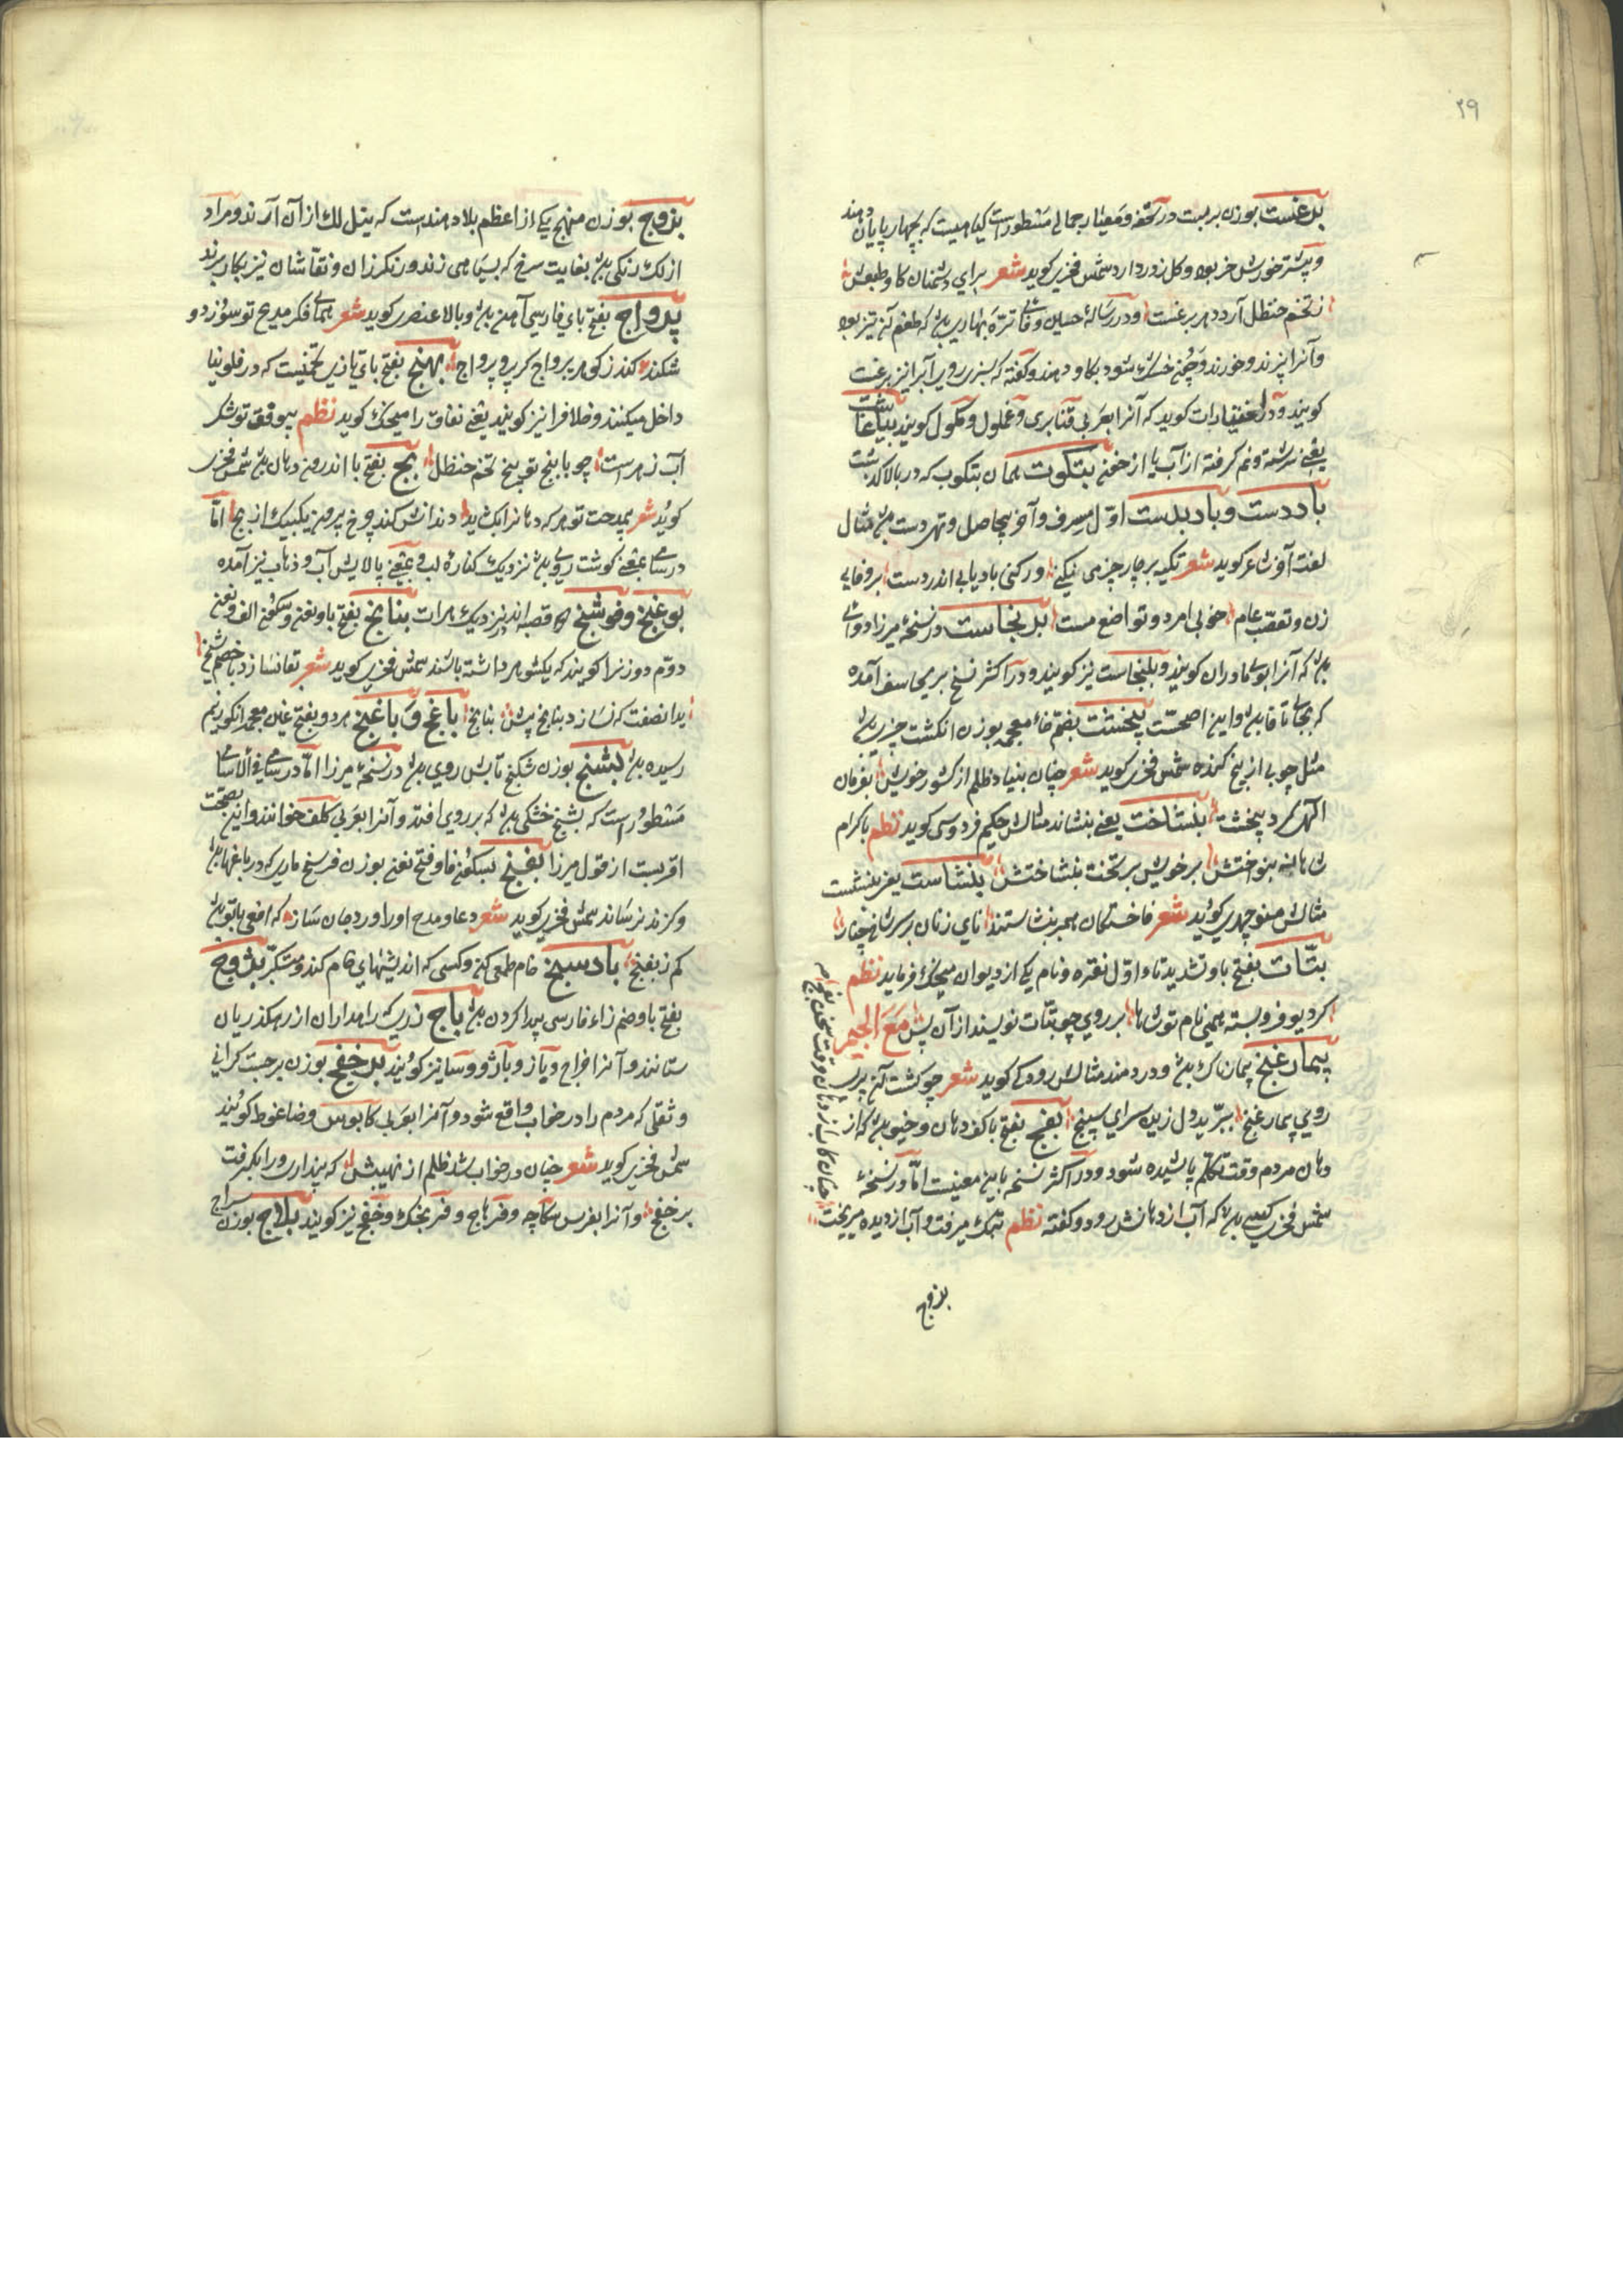 ۲۹
برغست بوزن بربست در تحفه و معیار جمالی مسطور است گیاهیست که بچهارپایان دهند
و بیشتر خورش خر بود و گل زرد دارد شمس فخری کوید شعر برای دشمنان کاو طبعش
ز تخم حنظل آرد دهر برغست و در رسالهٔ حسین وفائی ترهٔ بهاری بود که طعم آن تیز بود
و آنرا پزند و خورند و چون خشک شود بکاو دهند و کفته که سبزی روی آب را نیز برغست
کویند و در اختیارات کوید که آنرا بعربی قنابری و غملول و کویند
یعنی سرشته و نم کرفته از آب یا از خون بتکوت همان بتکوب که در بالا کذشت
باددست و بادبدست اول مسرف و آخر بیحاصل و تهی دست مثال
لغت آخر شاعر کوید شعر تکیه بر چار چیز می نکنی ور کنی باد یابی اندر دست بر وفای
زن و تعصب عام خوبی امرد و تواضع مست برنجاست در نسخهٔ میرزا دوائی
بود که آنرا بوی مادران کویند و بلنجاست نیز کویند و در اکثر نسخ برنجاسف آمده
که بجای تا فا بود و این اصحست پیخشت بضم خاء معجمه بوزن انکشت چیزی بود
مثل چوبی از بیخ کنده شمس فخری کوید شعر چنان بنیاد ظلم از کشور خویش بفرمان
الهی کرد پیخشت بنشاخت یعنی بنشاند مثالش حکیم فردوسی کوید نظم باکرام
شاهانه بنواختش بر خویش بر تخت بنشاختش بنشاست یعنی بنشست
مثالش منوچهری کوید شعر فاختکان همبر بنشاستند نای زنان بر سر شاخ چنار
بتات بفتح با و تشدید تاء اول نقره و نام یکی از دیوان میجک فرماید نظم
کر دیو فروبسته همی نام تو شاها بر روی چو بتات نویسند از آن پس مع الجیم
بیمارغنج بیمارناک بود و دردمند مثالش رودکی کوید شعر چو کشت آن پری
روی بیمارغنج ببرید دل زین سرای سپنج بفج بفتح با کف دهان و خیو بود که از
دهان مردم وقت تکلم پاشیده شود و در اکثر نسخه باین معنیست اما در نسخهٔ
شمس فخری کسی بود که آب از دهانش رود و کفته نظم تنک میرفت و آب از دیده میریخت
چنان کاب از دهان وقت سخن بفج
بزوج
بزوج بوزن منهج یکی از اعظم بلاد هند است که نیل لک از آن آرند و مراد
از لک رنکی بود بغایت سرخ که بسیاهی زند و رنکرزان و نقاشان نیز بکار برند
پرواج بفتح بای فارسی آهن بود و بالا عنصری کوید شعر همائی فکر مدیح تو سوزد و
شکند کند ز کوه پرواج کر پر و پرواج بهنج بفتح بای تازی تخمیست که در فلونیا
داخل میکنند و خلافرا نیز کویند یعنی نفاق را میجک کوید نظم بیوقق تو شکر
آب زهرست چو با بنج تو بنج تخم حنظل بج بفتح با اندرون دهان بود شمس فخری
کوید شعر بمدحت تو هر که دهانرا بکشاید دندانش کند چرخ برون یکبیک از بج اما
در سامی بمعنی کوشت روی بود نزدیک کنارهٔ لب و بمعنی پالایش آب و ذهاب نیز آمده
بوغنج و فوشنج قصبه اند نزدیک هرات بنانج بفتح با و نون و سکون الف و نون
دوم دو زنرا کویند که یکشوهر داشته باشند شمس فخری کوید شعر تقانسازد با خصم شیخ
بدانصفت که نسازد بنانج پیش بنانج باغج و باغنج هر دو بفتح غین معجمه انکور نیم
رسیده بود بشنج بوزن شکنج تابش روی بود در نسخهٔ میرزا اما در سامی فی الاسامی
مسطور است که بشنج خشکی بود که بر روی افتد و آنرا بعربی کلف خوانند و این بصحت
اقربست از قول میرزا بفنج بسکون فا و فتح نون بوزن فرسنج ماری که در باغها بود
و کزند نرساند شمس فخری کوید شعر دعا و مدح او را ورد جان ساز که افعی با تو بود
کم ز بفنج بادسنج خام طمع کن و کسی که اندیشهای خام کند و متکبر بژوج
بفتح با و ضم زاء فارسی پیدا کردن بود باج زریکه راهداران از رهکذریان
ستانند و آنرا خراج و باز و باژ و سا نیز کویند برخفج بوزن برجست کرانی
و ثقلی که مردم را در خواب واقع شود و آنرا بعربی کابوس و ضاغوط کویند
شمس فخری کوید شعر چنان در خواب شد ظلم از نهیبش که پنداری ورا بکرفت
برخفج و آنرا بفرس سکاچه و فرهاج و فرنجک و خفج نیز کویند بلاج بوزن سراج